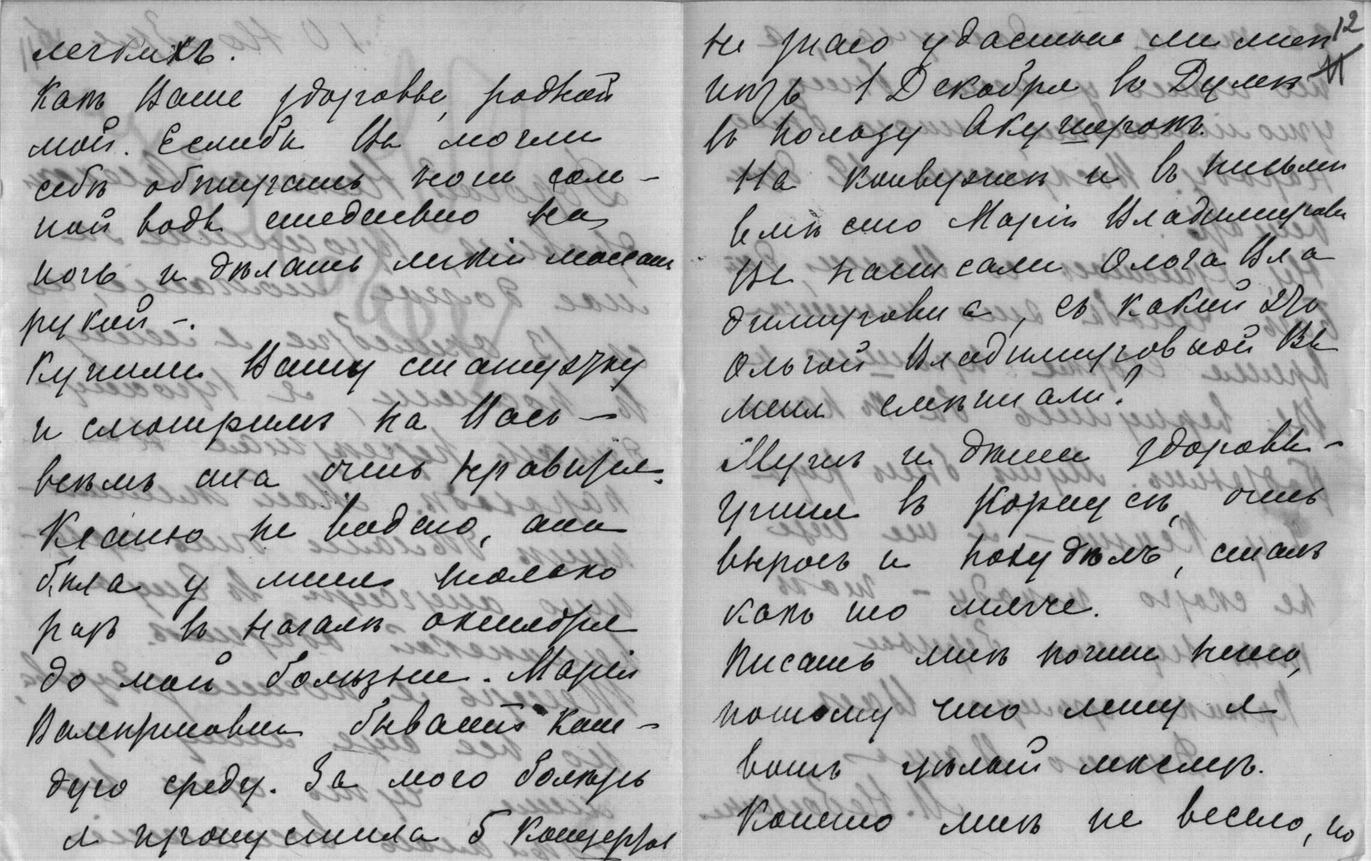 легкихъ.
Какъ Ваше здоровье, родной
мой. Еслибъ Вы могли
себѣ обтирать ноги соле-
ной водѣ ежедневно на
ночь и дѣлать легкій массажъ
рукой -.
Купили Вашу статуэтку
и смотримъ на Васъ -
всѣмъ она очень нравится.
Ксенію не видѣла, она
была у меня только
разъ въ началѣ октября
до моей болѣзни. Марія
Валерьяновна бываетъ каж-
дую среду. За мою болѣзнь
я пропустила 5 концертовъ
12
11
не знаю удастся ли мнѣ
ихъ 1 Декабря въ Думѣ
въ пользу Акушерокъ.
На конвертѣ и въ письмѣ
вмѣсто Марія Владимировна
Вы написали Ольга Вла
димировна, съ какой это
Ольгой Владимировной Вы
меня смѣшали?
Мужъ и дѣти здоровы -
Гриша въ Корпусѣ, очень
выросъ и похудѣлъ, сталъ
какъ то мягче.
Писать мнѣ почти нечего,
потому что лежу я
вотъ цѣлый мѣсяцъ.
Конечно мнѣ не весело, но